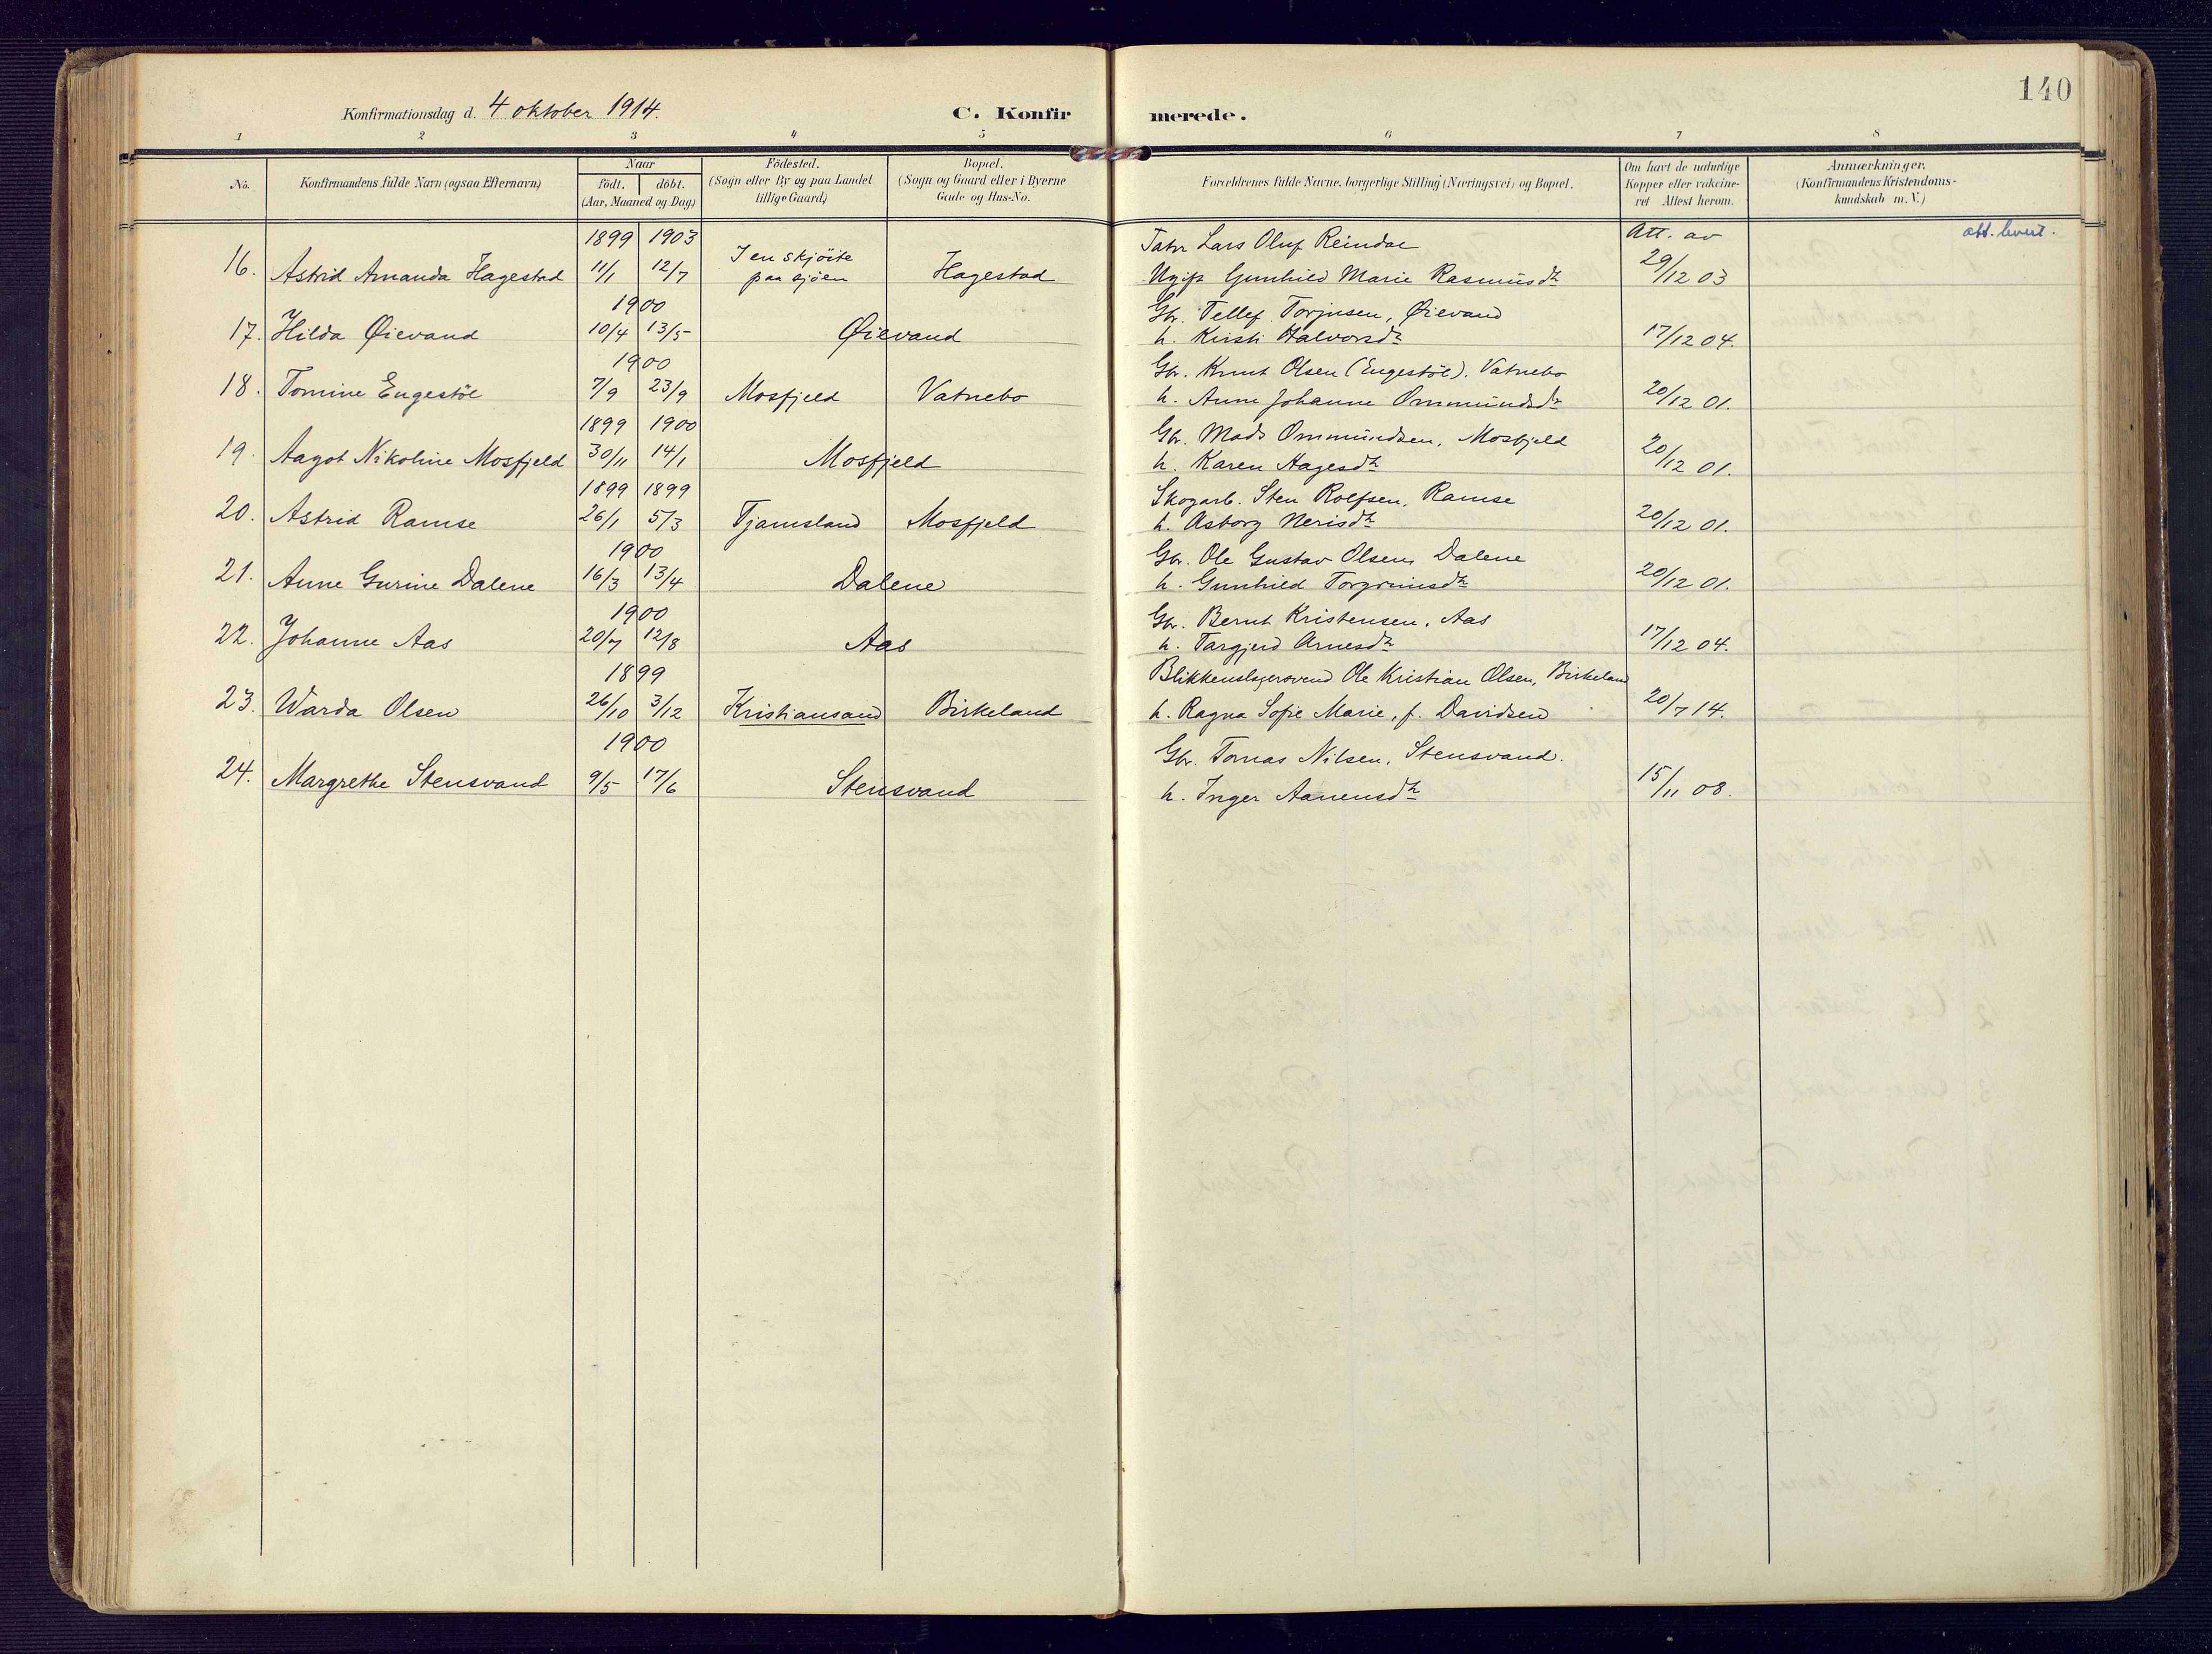 140
Konfirmationsdag d. 4 oktober 1914.
C. Konfirmerede.
1 2 3 4 5 6 7 8
No. Konfirmandens fulde Navn (ogsaa Efternavn) Naar Födested. Bopæl. Forældrenes fulde Navne, borgerlige Stilling (Næringsvei) og Bopæl. Om havt de naturlige Anmærkninger.
födt. döbt. (Sogn eller By og paa Landet (Sogn og Gaard eller i Byerne Kopper eller vakcine- (Konfirmandens Kristendoms-
(Aar, Maaned og Dag) tillige Gaard) Gade og Hus-No. ret Attest herom. kundskab m.V.)
1899 1903 I en skjöite Tatr Lars Oluf Reindal Att. av att. levert.
16. Astrid Amanda Hagestad 11/1 12/7 paa sjöen Hagestad Ugift Gunhild Marie Rasmusdtr 29/12 03
1900 Gbr. Tellef Torjusen, Øievand
17. Hilda Øievand 10/4 13/5 Øievand h. Kirsti Halvorsdtr 17/12 04.
1900 Gbr. Knut Olsen (Engestöl). Vatnebo
18. Tomine Engestöl 7/9 23/9 Mosfjeld Vatnebo h. Anne Johanne Ommundsdtr 20/12 01.
1899 1900 Gbr. Mads Ommundsen, Mosfjeld
19. Aagot Nikoline Mosfjeld 30/11 14/1 Mosfjeld h. Karen Aagesdtr 20/12 01.
1899 1899 Skogarb. Sten Rolfsen, Ramse
20. Astrid Ramse 26/1 5/3 Tjamsland Mosfjeld h. Asborg Nerisdtr 20/12 01.
1900 Gbr. Ole Gustav Olsen, Dalene
21. Anne Gurine Dalene 16/3 13/4 Dalene h. Gunhild Torgrimsdtr 20/12 01.
1900 Gbr. Bernt Kristensen, Aas
22. Johanne Aas 20/7 12/8 Aas h. Targjerd Arnesdtr 17/12 04.
1899 Blikkenslagersvend Ole Kristian Olsen, Birkeland
23. Warda Olsen 26/10 3/12 Kristiansand Birkeland h. Ragna Sofie Marie, f. Davidsen 20/7 14.
1900 Gbr. Tomas Nilsen, Stensvand.
24. Margrethe Stensvand 9/5 17/6 Stensvand h. Inger Aanensdtr 15/11 08.